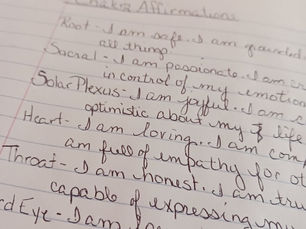 Chakra Affirmations
Root - I am safe. I am grounded
all things.
Sacral - I am passionate. I am in
in control of my emotio
Solar Plexus - I am joyful. I am c
optimistic about my life
Heart - I am loving. I am com
am full of empathy for ot
Throat - I am honest. I am tru
capable of expressing my
rd Eye - I am